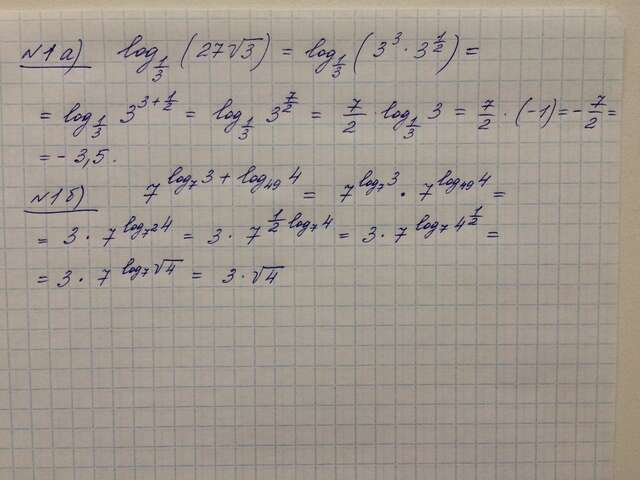 N1a) log_{1/3} (27√3) = log_{1/3} (3^3 · 3^{1/2}) =
= log_{1/3} 3^{3+1/2} = log_{1/3} 3^{7/2} = 7/2 · log_{1/3} 3 = 7/2 · (-1) = -7/2 =
= -3,5.
N1б) 7^{log_7 3 + log_{49} 4} = 7^{log_7 3} · 7^{log_{49} 4} =
= 3 · 7^{log_{7^2} 4} = 3 · 7^{1/2 log_7 4} = 3 · 7^{log_7 4^{1/2}} =
= 3 · 7^{log_7 √4} = 3 · √4